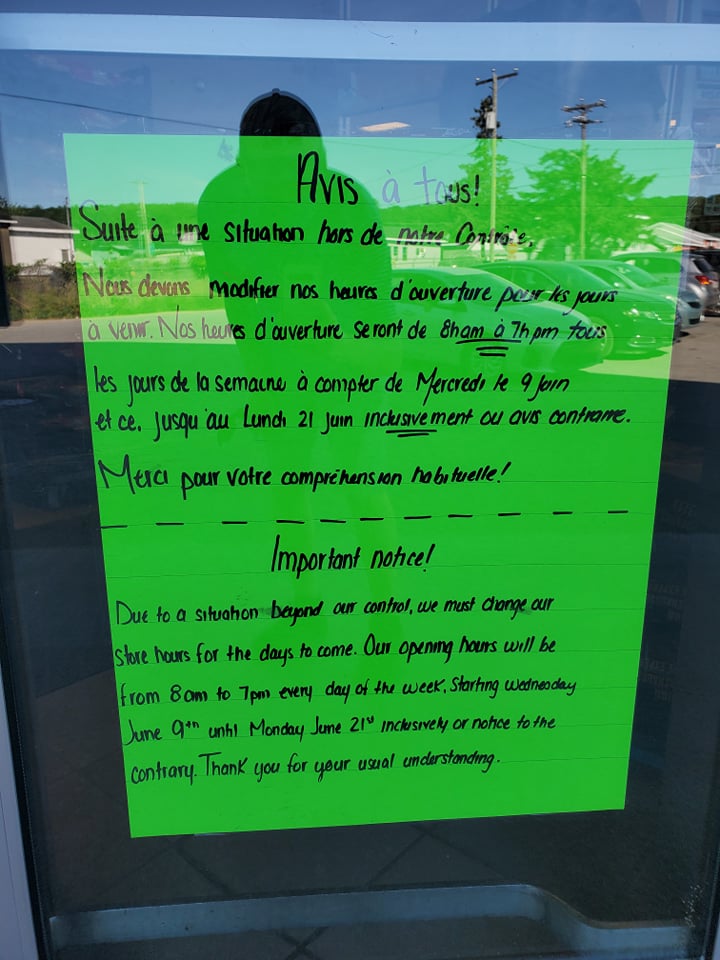 Avis à tous!
Suite à une situation hors de notre Contrôle,
Nous devons modifier nos heures d'ouverture pour les jours
à venir. Nos heures d'ouverture seront de 8h am à 7h pm tous
les jours de la semaine à compter de Mercredi le 9 Juin
et ce, jusqu'au Lundi 21 Juin inclusivement ou avis contraire.
Merci pour votre compréhension habituelle!
Important notice!
Due to a situation beyond our control, we must change our
store hours for the days to come. Our opening hours will be
from 8am to 7pm every day of the week, starting wednesday
June 9th until Monday June 21st inclusively or notice to the
contrary. Thank you for your usual understanding.